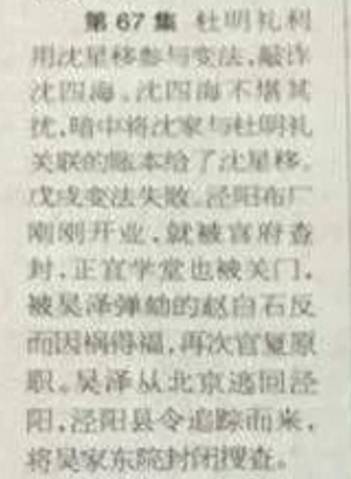 第67集 杜明礼利
用沈星移参与变法,敲诈
沈四海。沈四海不堪其
扰,暗中将沈家与杜明礼
关联的账本给了沈星移。
戊戌变法失败。泾阳布厂
刚刚开业,就被官府查
封,正宜学堂也被关门,
被吴泽弹劾的赵白石反
而因祸得福,再次官复原
职。吴泽从北京逃回泾
阳,泾阳县令追踪而来,
将吴家东院封闭搜查。